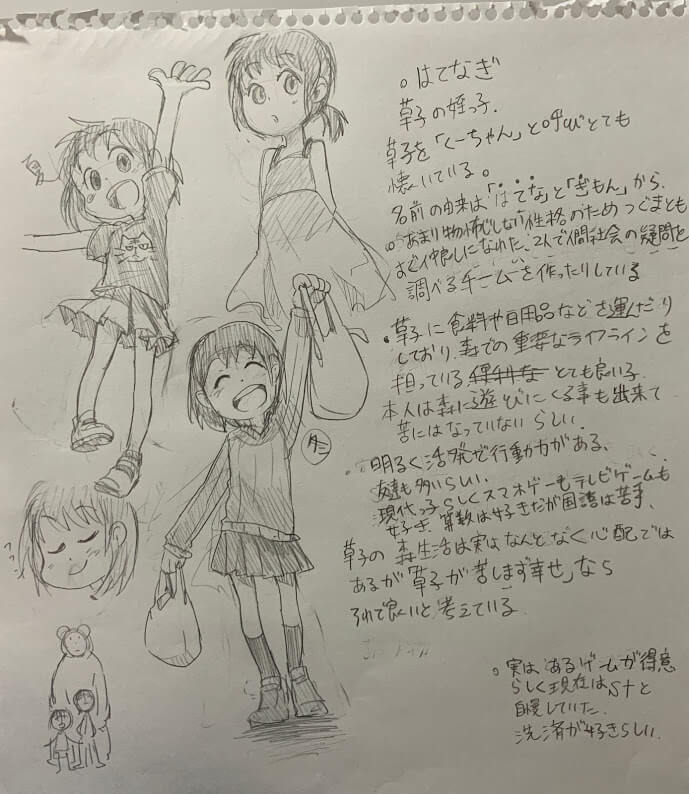 。はてなぎ
草子の姪っ子.
草子を「くーちゃん」と呼びとても
懐いている。
名前の由来は「はてな」と「ぎもん」から.
。あまり物怖じしない性格のためつぐまとも
すぐ仲良しになれた、2人で人間社会の疑問を
調べるチームを作ったりしている
・草子に食料や日用品などを運んだり
しており、森での重要なライフラインを
担っている とても良い子.
本人は森に遊びにくる事も出来て
苦にはなっていないらしい.
・明るく活発で行動力がある、
友達も多いらしい.
現代っ子らしくスマホゲームもテレビゲームも
好き、算数は好きだが国語は苦手、
草子の森生活は実はなんとなく心配では
あるが「草子が苦しまず幸せ」なら
それで良いと考えている
。実はあるゲームが得意
らしく現在はS+と
自慢していた.
洗濯が好きらしい.
夏
冬